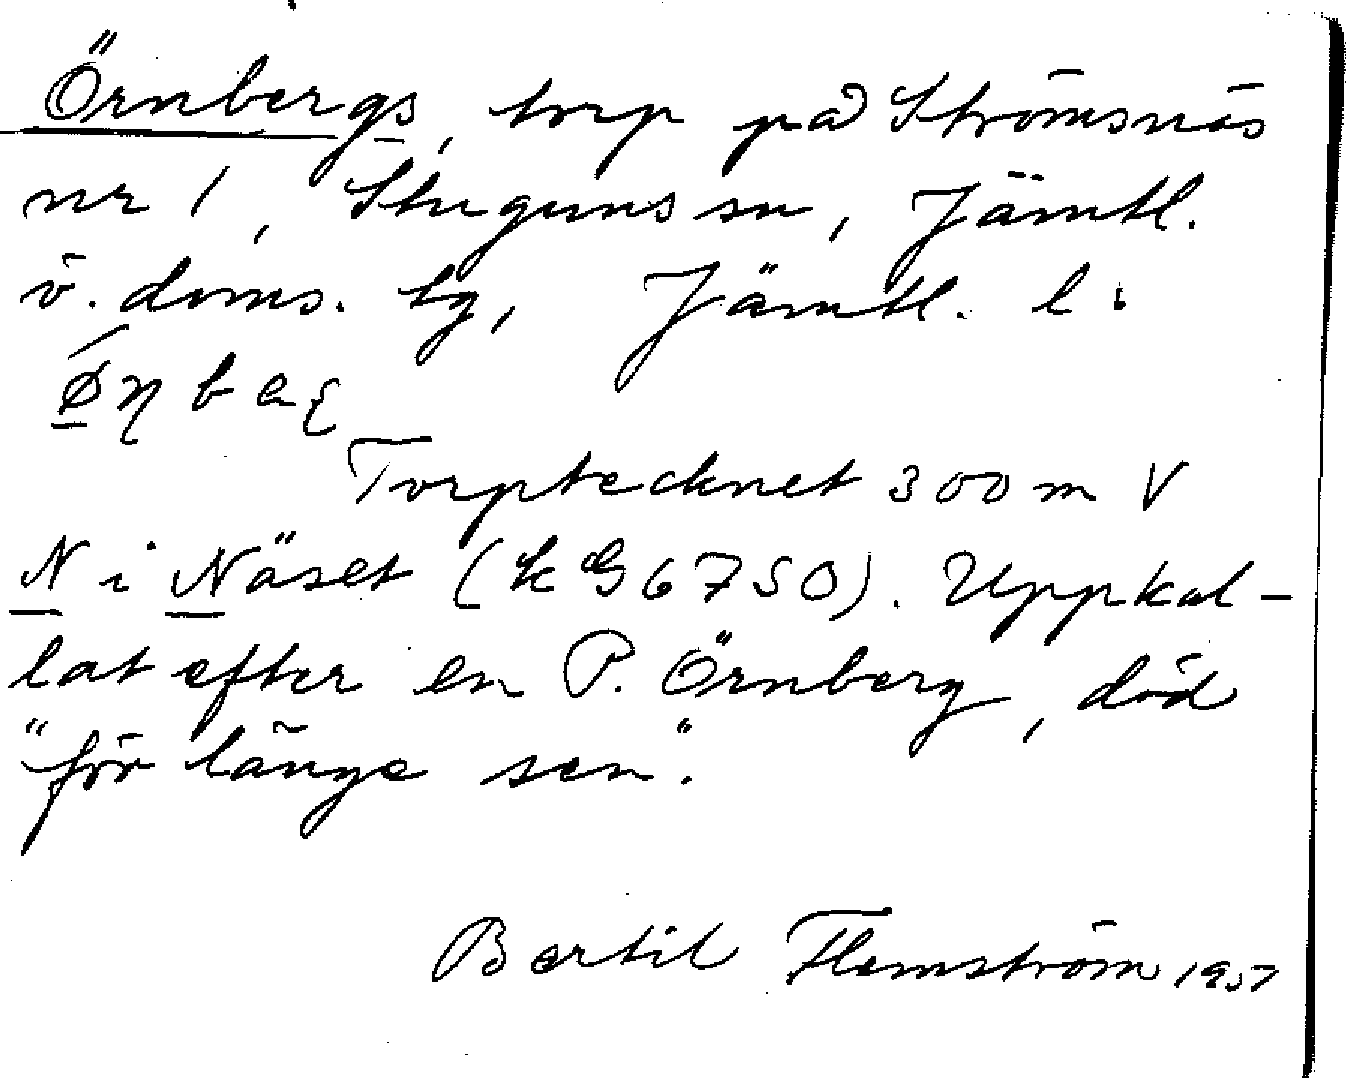 Örnbergs, torp på Strömsnäs
nr 1, Stuguns sn, Jämtl.
ö. doms. tg, Jämtl. l:
Torptecknet 300 m V
N i Näset (k G 6750). Uppkal-
lat efter en P. Örnberg, död
"för länge sen".
Bertil Flemström 1957